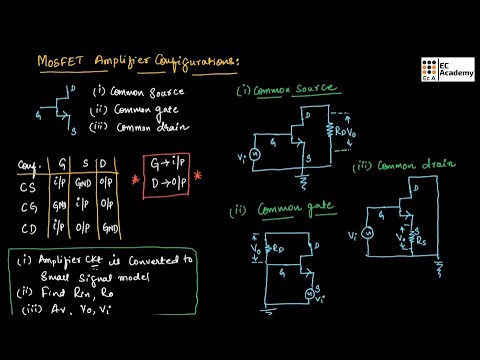 MOSFET Amplifier Configurations:
EC Academy
Ec.A
D
G
S
(i) Common Source
(ii) Common gate
(iii) Common drain
Conf. G S D
CS i/p GND o/p
CG GND i/p o/p
CD i/p o/p GND
* G → i/p *
D → o/p
(i) Amplifier CKt is converted to
Small Signal model
(ii) Find Rin, Ro
(iii) Av, Vo, Vi
(i) Common Source
D
G
S
Vi
RD Vo
(ii) Common gate
Vo RD
D
G
S
Vi
(iii) Common drain
D
G
S
Vi
Vo RS